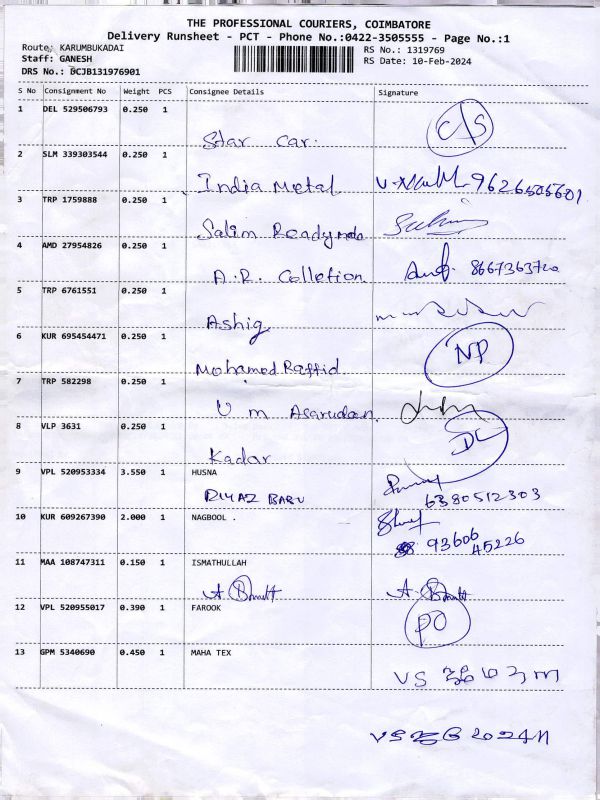 THE PROFESSIONAL COURIERS, COIMBATORE
Delivery Runsheet - PCT - Phone No.:0422-3505555 - Page No.:1
Route: KARUMBUKADAI
RS No.: 1319769
Staff: GANESH
RS Date: 10-Feb-2024
DRS No.: DCJB131976901
S No Consignment No Weight PCS Consignee Details Signature
1 DEL 529506793 0.250 1
Star Car. C/S
2 SLM 339303544 0.250 1
India Metal 9626505601
3 TRP 1759888 0.250 1
Salim Readymade
4 AMD 27954826 0.250 1
A.R. Colletion
5 TRP 6761551 0.250 1
Ashiq
6 KUR 695454471 0.250 1
Mohamed Raffid NP
7 TRP 582298 0.250 1
U m
8 VLP 3631 0.250 1
Kadar DC
9 VPL 520953334 3.550 1 HUSNA
RIYAZ BABU 6380512303
10 KUR 609267390 2.000 1 NAGBOOL .
93606
45226
11 MAA 108747311 0.150 1 ISMATHULLAH
12 VPL 520955017 0.390 1 FAROOK
PO
13 GPM 5340690 0.450 1 MAHA TEX
VS